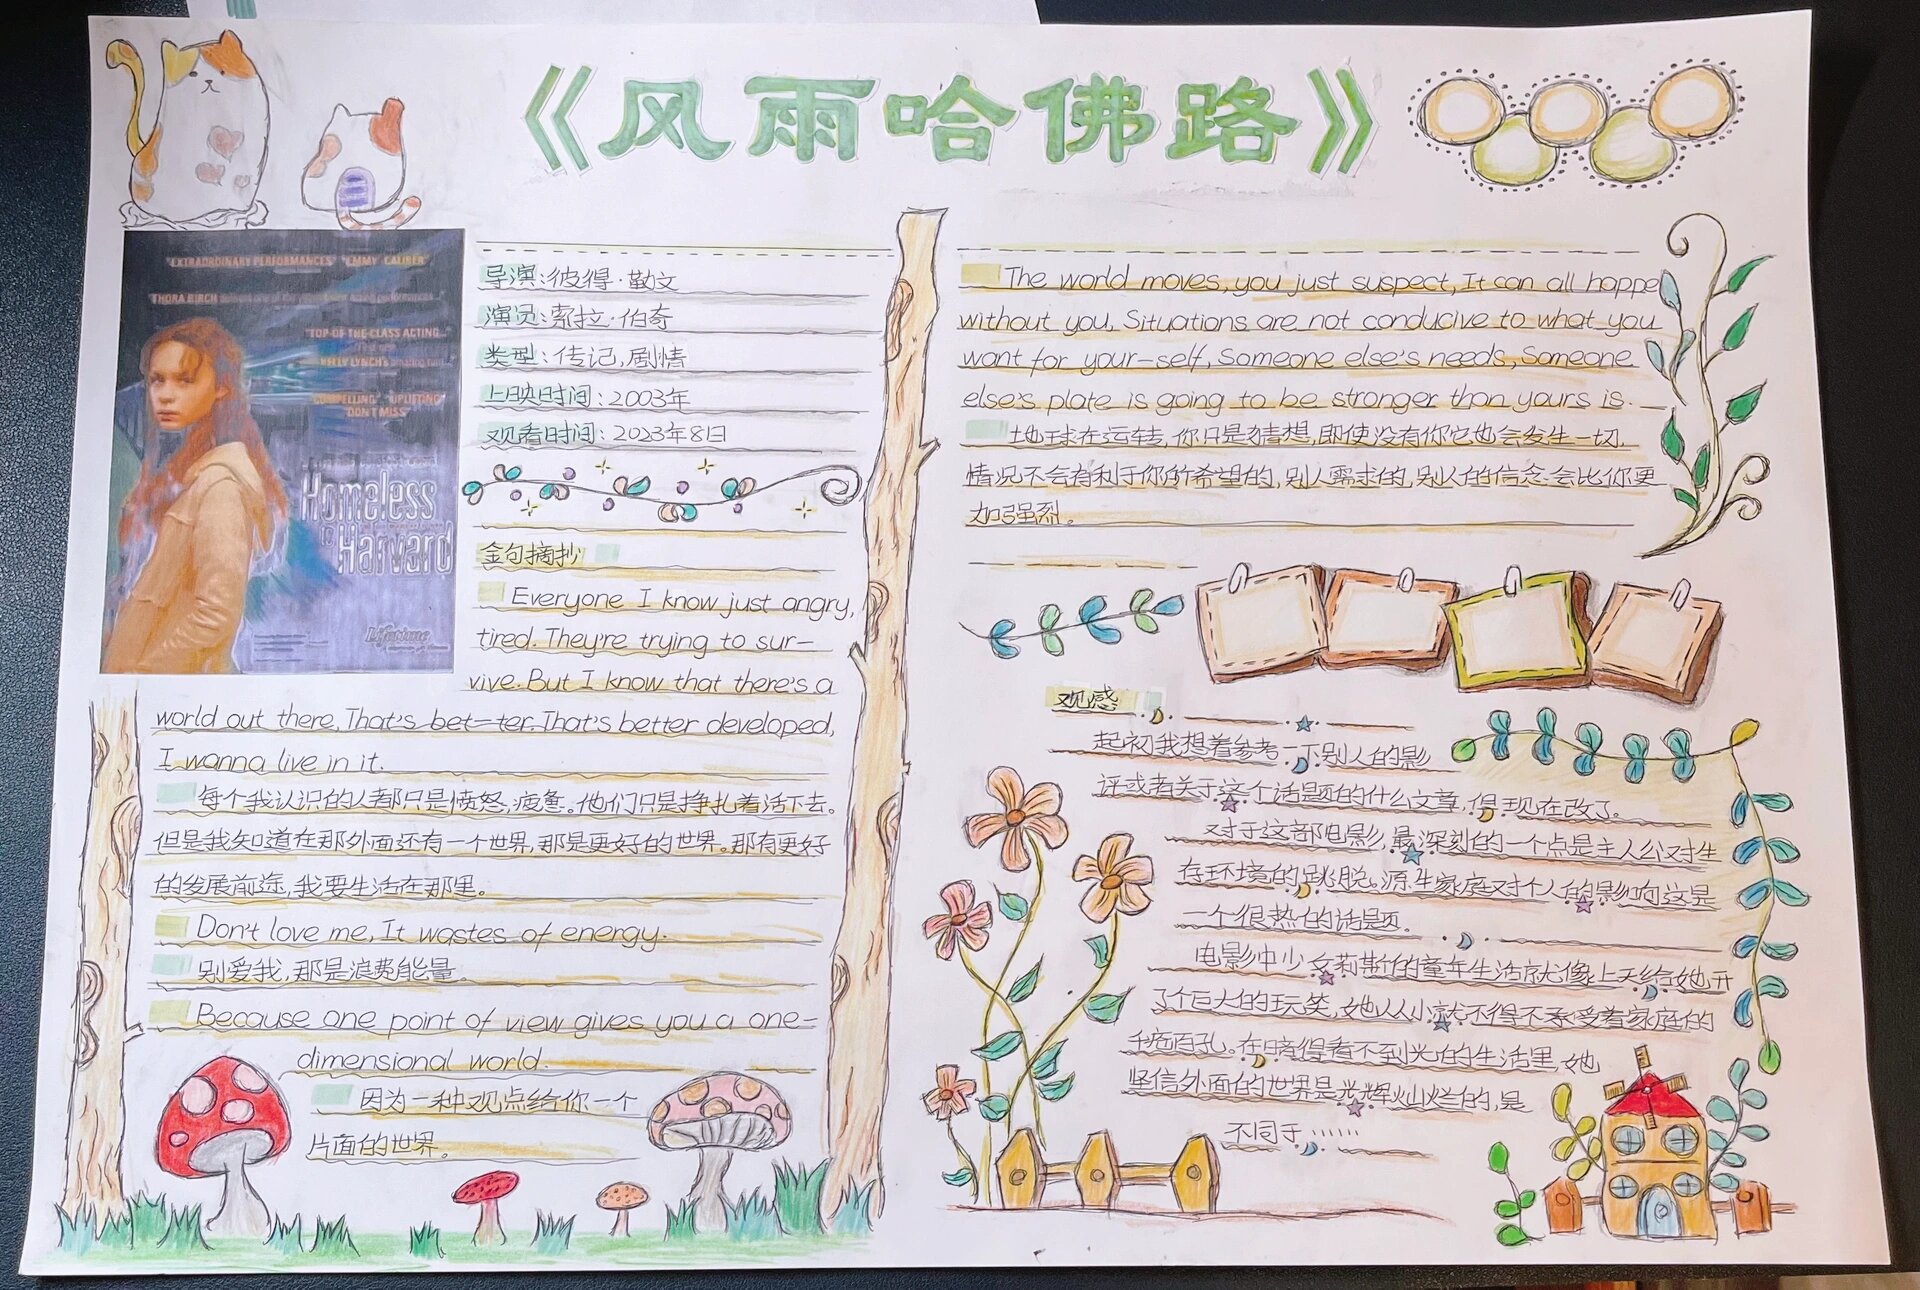 《风雨哈佛路》
"EXTRAORDINARY PERFORMANCES" "EMMY CALIBER"
"THORA BIRCH
"TOP-OF-THE-CLASS ACTING
KELLY LYNCH's amazing
"COMPELLING" "UPLIFTING"
"DON'T MISS"
Homeless
to
Harvard
Lifetime
导演:彼得·勒文
演员:索拉·伯奇
类型:传记,剧情
上映时间:2003年
观看时间:2023年8日
金句摘抄
Everyone I know just angry,
tired. They're trying to sur-
vive. But I know that there's a
world out there. That's bet-ter. That's better developed,
I wanna live in it.
每个我认识的人都只是愤怒,疲惫。他们只是挣扎着活下去。
但是我知道在那外面还有一个世界,那是更好的世界。那有更好
的发展前途,我要生活在那里。
Don't love me, It wastes of energy.
别爱我,那是浪费能量。
Because one point of view gives you a one-
dimensional world.
因为一种观点给你一个
片面的世界。
The world moves, you just suspect, It can all happe
without you, Situations are not conducive to what you
want for your-self, Someone else's needs, Someone
else's plate is going to be stronger than yours is.
地球在运转,你只是猜想,即使没有你它也会发生一切.
情况不会有利于你所希望的,别人需求的,别人的信念会比你更
加强烈。
观感
起初我想着参考一下别人的影
评或者关于这个话题的什么文章,但现在改了。
对于这部电影,最深刻的一个点是主人公对生
存环境的跳脱。源生家庭对个人的影响这是
一个很热的话题。
电影中少女莉斯的童年生活就像上天给她开
了个巨大的玩笑,她从小就不得不承受着家庭的
千疮百孔。在暗得看不到光的生活里,她
坚信外面的世界是光辉灿烂的,是
不同于……